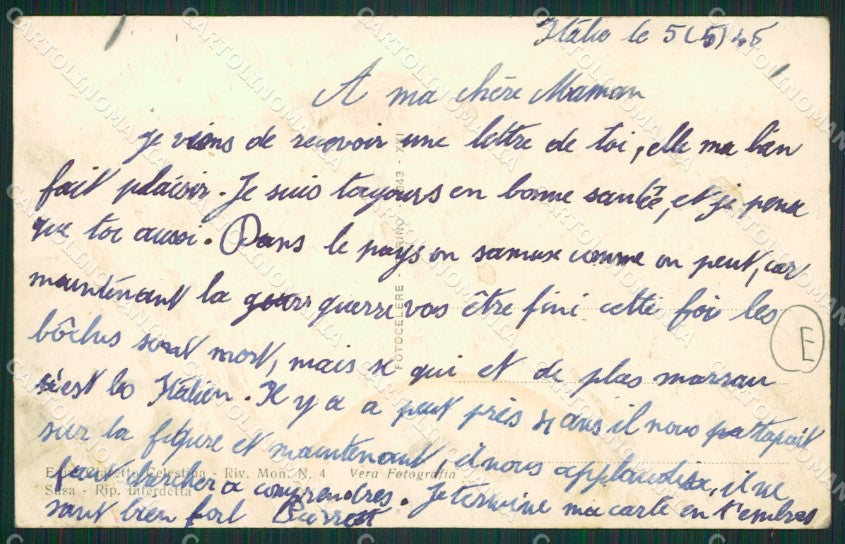 Italie le 5(5)45
A ma chère Maman
je viens de recevoir une lettre de toi, elle ma bien
fait plaisir. Je suis toujours en bonne santée, et je pense
que toi aussi. Dans le pays on samuse comme on peut, car
maintenant la guerre vas être fini cette foi les
bôches sont mort, mais se qui et de plus marrau
s'est les Italien. Il y a a peut près 4 ans il nous tapait
sur la figure et maintenant, il nous applaudisse, il ne
faut chercher a comprendres. Je termine ma carte en t'embras
sant bien fort
E
FOTOCELERE
Celestina - Riv. Mon. N. 4 Vera Fotografia
Susa - Rip. interdetta
CARTOLINOMANIA